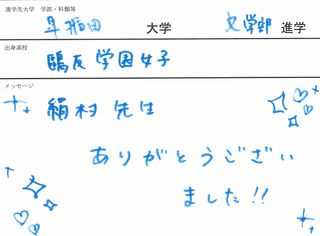 進学先大学 学部・科類等
早稲田 大学 文学部 進学
出身高校
鷗友学園女子
メッセージ
絹村先生
ありがとうござい
ました!!